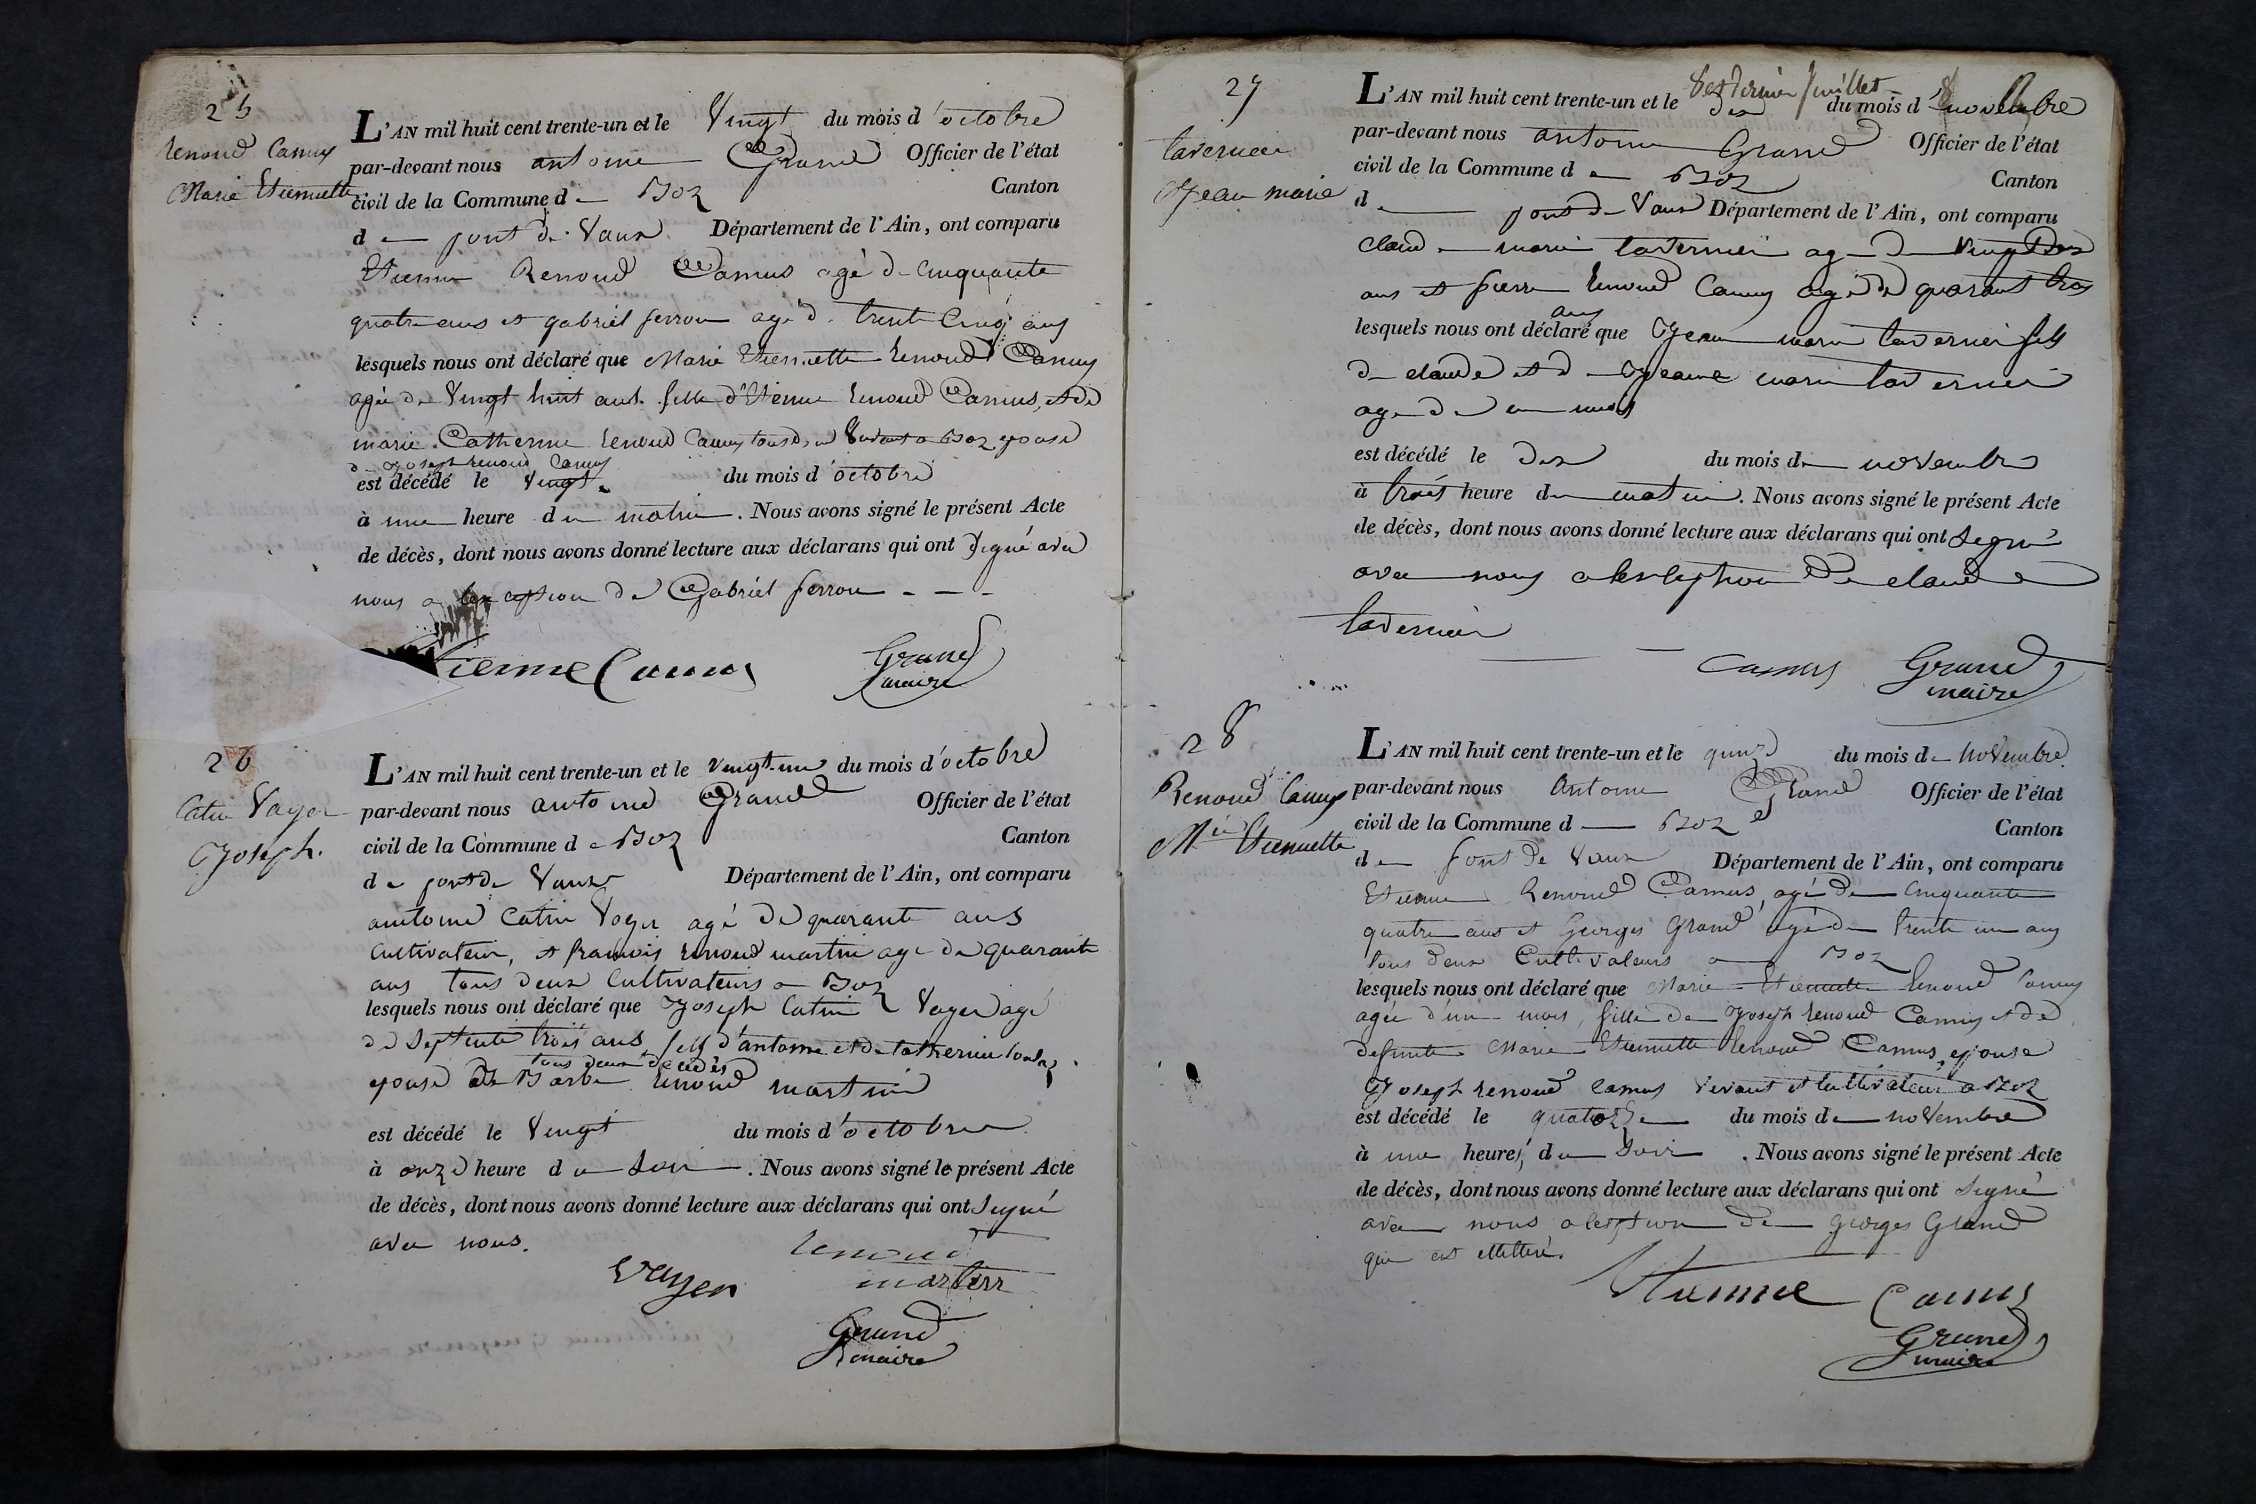 25
renoud Camus
Marie Etiennette
L'AN mil huit cent trente-un et le Vingt du mois d'octobre
par-devant nous antoine Grand Officier de l'état
civil de la Commune de Boz Canton
de pont de Vaux Département de l'Ain, ont comparu
Etienne Renoud Camus agé de cinquante
quatre ans et gabriel ferron agé de trente cinq ans
lesquels nous ont déclaré que Marie Etiennette renoud Camus
agée de Vingt huit ans fille d'Etienne renoud Camus, et de
marie Catherine renoud Camus tous deux Vivant a Boz epouse
de joseph renoud Camus
est décédé le Vingt du mois d'octobre
à une heure du matin. Nous avons signé le présent Acte
de décès, dont nous avons donné lecture aux déclarans qui ont signé avec
nous a lexception de Gabriel ferron - - -
Etienne Camus Grand
maire
26
Catin Vayer
Joseph.
L'AN mil huit cent trente-un et le vingt-un du mois d'octobre
par-devant nous antoine Grand Officier de l'état
civil de la Commune de Boz Canton
de pont de Vaux Département de l'Ain, ont comparu
antoine Catin Voyer agé de quarante ans
cultivateur, et francois renoud martin agé de quarante
ans tous deux Cultivateurs a Boz
lesquels nous ont déclaré que Joseph Catin Vayer agé
de Septente trois ans fils d'antoine et de Catherine
tous deux décédés
epouse de Barbe renoud martin
est décédé le Vingt du mois d'octobre
à onze heure du Soir. Nous avons signé le présent Acte
de décès, dont nous avons donné lecture aux déclarans qui ont Signé
avec nous.
Vayer renoud
martin
Grand
maire
27
tavernier
Jean marie
8et dernier feuillet
L'AN mil huit cent trente-un et le dix du mois de novembre
par-devant nous antoine Grand Officier de l'état
civil de la Commune de Boz Canton
de pont de Vaux Département de l'Ain, ont comparu
claude marie tavernier agé de Vingt
ans et pierre renoud Camus agé de quarante trois
ans
lesquels nous ont déclaré que Jean marie tavernier fils
de claude et de Jeanne marie tavernier
agé de un mois
est décédé le dix du mois de novembre
à trois heure du matin. Nous avons signé le présent Acte
de décès, dont nous avons donné lecture aux déclarans qui ont Signé
avec nous a lexception de claude
tavernier
camus Grand
maire
28
Renoud Camus
Mie Etiennette
L'AN mil huit cent trente-un et le quinze du mois de novembre
par-devant nous Antoine Grand Officier de l'état
civil de la Commune de Boz Canton
de pont de Vaux Département de l'Ain, ont comparu
Etienne Renoud Camus, agé de cinquante
quatre ans et Georges Grand agé de trente un ans
tous deux Cultivateurs a Boz
lesquels nous ont déclaré que Marie Etiennette renoud Camus
agée d'un mois, fille de Joseph renoud Camus et de
defunte Marie Etiennette renoud Camus, epouse
Joseph renoud Camus vivant et cultivateur a Boz
est décédé le quatorze du mois de novembre
à une heure, du Soir. Nous avons signé le présent Acte
de décès, dont nous avons donné lecture aux déclarans qui ont signé
avec nous a lexeption de georges Grand
qui est illetteré.
Etienne Camus
Grand
maire